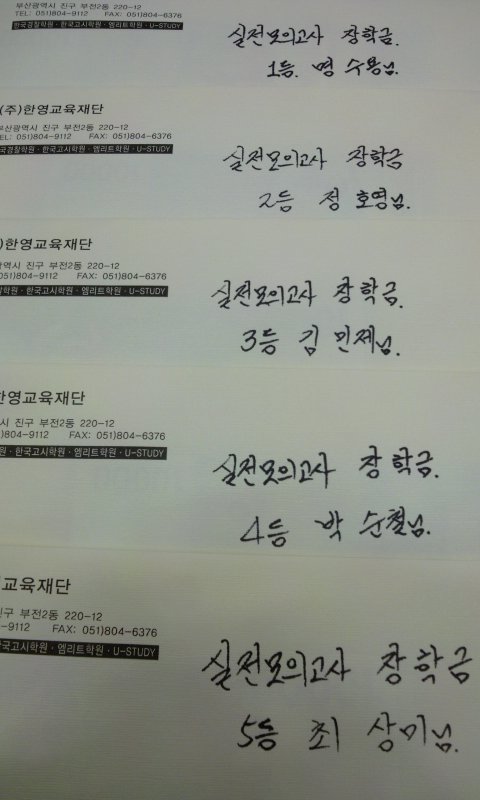 부산광역시 진구 부전2동 220-12
TEL: 051)804-9112 FAX: 051)804-6376
한국경찰학원·한국고시학원·엠리트학원·U-STUDY
실전모의고사 장학금.
1등. 명 수용님.
(주)한영교육재단
부산광역시 진구 부전2동 220-12
TEL: 051)804-9112 FAX: 051)804-6376
국경찰학원·한국고시학원·엠리트학원·U-STUDY
실전모의고사 장학금
2등 정 호영님.
)한영교육재단
역시 진구 부전2동 220-12
051)804-9112 FAX: 051)804-6376
찰학원·한국고시학원·엠리트학원·U-STUDY
실전모의고사 장학금.
3등 김 민제님.
한영교육재단
시 진구 부전2동 220-12
)804-9112 FAX: 051)804-6376
원·한국고시학원·엠리트학원·U-STUDY
실전모의고사 장학금.
4등 박 순철님.
교육재단
진구 부전2동 220-12
-9112 FAX: 051)804-6376
한국고시학원·엠리트학원·U-STUDY
실전모의고사 장학금
5등 최 상미님.